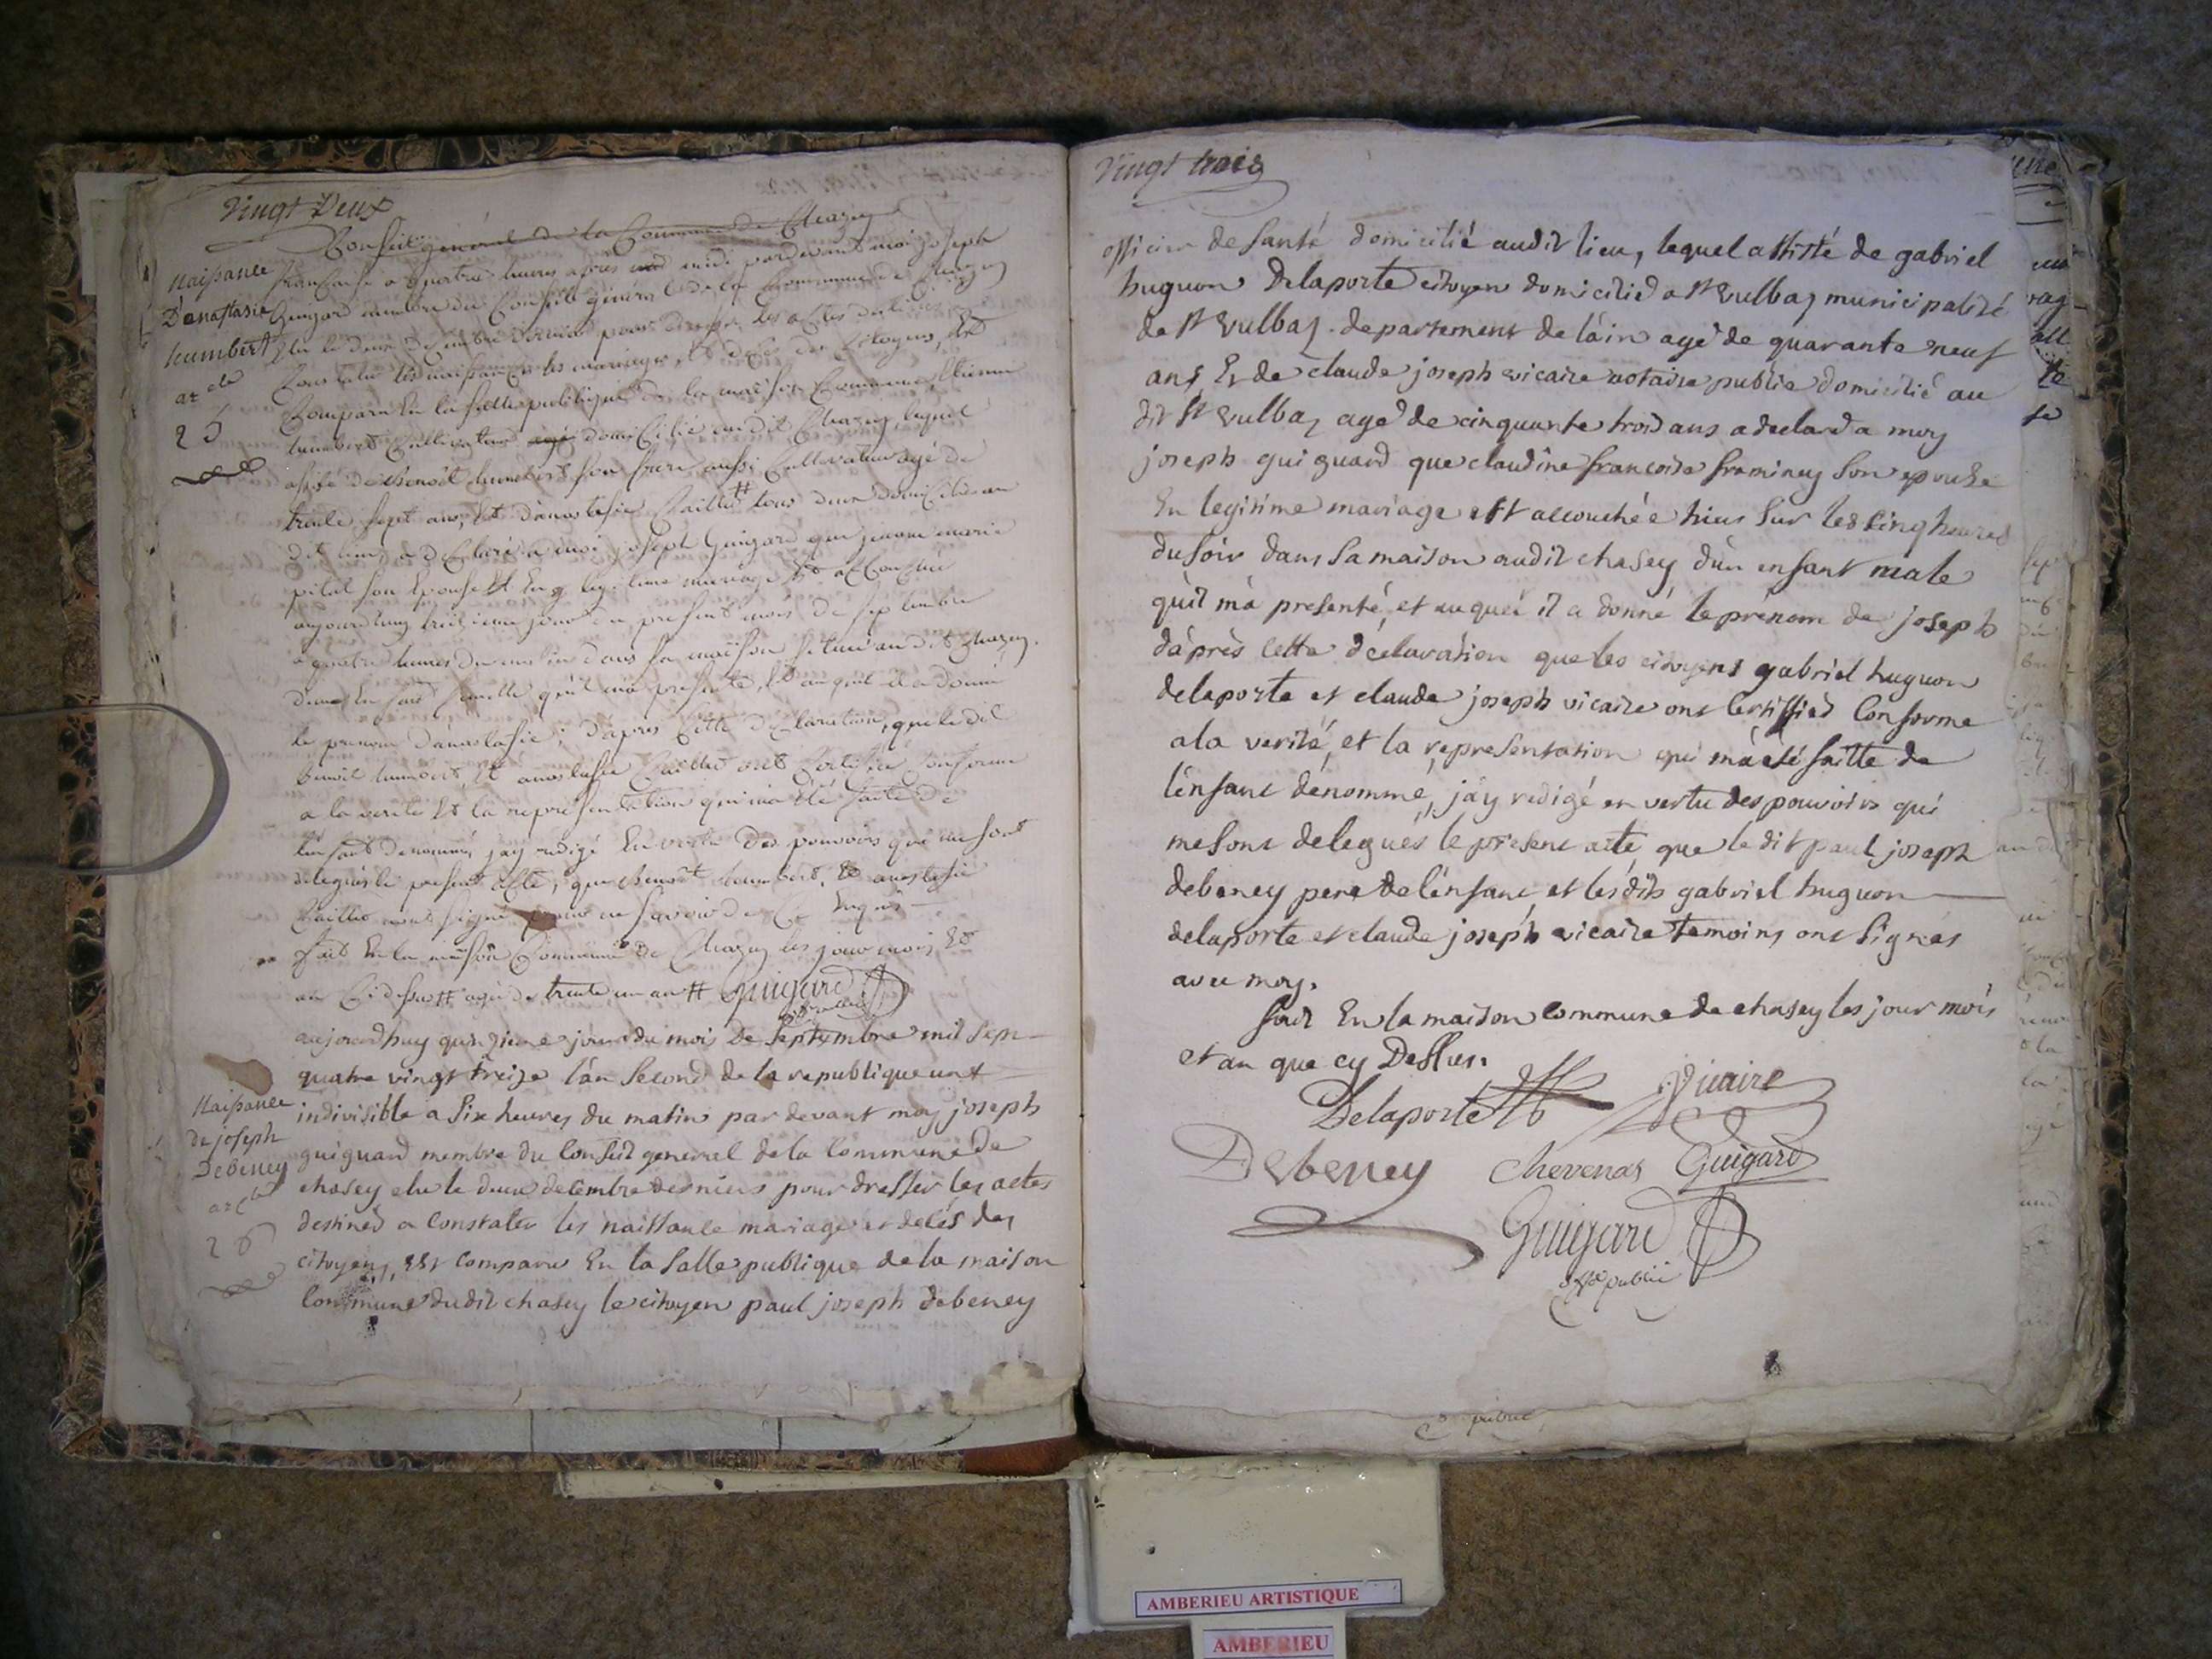 Vingt Deux
Conseil general de la Commune de Chazey
Naissance
D'anastasie
humbert
ar cle
25
francaise a quatre heures apres midi pardevant moi joseph
Guigard membre du Conseil général de la Commune de Chazey
Elu le deux decembre dernier pour dresser les actes destinés
Constater les naissances les mariages et deces des Citoyens, est
Comparu En la salle publique de la maison Commune, Etienne
humbert Cultivateur domicilié au dit Chazey, lequel
assisté de Benoit humbert son frere aussi Cultivateur agé de
trente sept ans, et d'anastasie Caillet # tous deux domiciliés au
dit lieu, a déClaré a moi joseph Guigard que jeanne marie
pitol son Epouse En legitime mariage Est accouchée
aujourdhuy treizieme jour du present mois de septembre
a quatre heures du matin dans sa maison située au dit Chazey.
dune Enfant femelle qu'il ma presenté, Et auquel il a donné
le prenom d'anastasie; d'apres Cette déClaration, que le dit
benoit humbert, Et anastasie Caillet ont Certifiée Conforme
a la verité Et la representation qui ma été faite de
l'enfant denommé, jay redigé En vertu des pouvoirs qui me sont
delegués le present acte, que benoit humbert, Et anastasie
Caillet nont signé pour ne savoir de Ce Enquis
fait En la maison Commune de Chazey les jour mois, Et
an Ci dessus # agée de trente un an # Guigard
aujourdhuy quinzieme jour du mois De Septembre mil sept
quatre vingt treize l'an Second de la republique une
Naissance
de joseph
Debeney
ar cle
26
indivisible a Six heures du matin par devant moy joseph
guiguard membre du Conseil general de la Commune de
chasey elu le deux decembre dernier pour dresser les actes
destinés a Constater les naissance mariage et decés des
citoyens, est comparu En la Salle publique de la maison
Commune dudit chasey le citoyen paul joseph debeney
Vingt trois
officier de santé domicilié audit lieu, lequel assisté de gabriel
huguon Delaporte citoyen domicilié a St Vulbas municipalité
de St Vulbas departement de láin agé de quarante neuf
ans Et de claude joseph vicaire notaire public domicilié au
dit St Vulbas agé de cinquante trois ans a declaré a moy
joseph guiguard que claudine francoise framiney Son epouse
En legitime mariage est accouchée hier Sur les Cinq heures
du soir dans Sa maison audit chasey d'un enfant male
qu'il má presenté, et auquel il a donné le prénom de joseph
dáprès cette déclaration que les citoyens gabriel huguon
delaporte et claude joseph vicaire ont certiffiés Conforme
a la verité, et la representation qui má eté faitte de
l'énfant dénommé, jáy redigé en vertu des pouvoirs qui
me Sont delegués le present acte que le dit paul joseph
debeney pere de l'énfant et lesdits gabriel huguon
delaporte et claude joseph vicaire temoins ont Signés
avec moy.
fait En la maison commune de chasey les jour mois
et an que cy Dessus.
Delaporte Vicaire
Debeney Chevenas Guigard
Guigard
offer public
public
AMBERIEU ARTISTIQUE
AMBERIEU